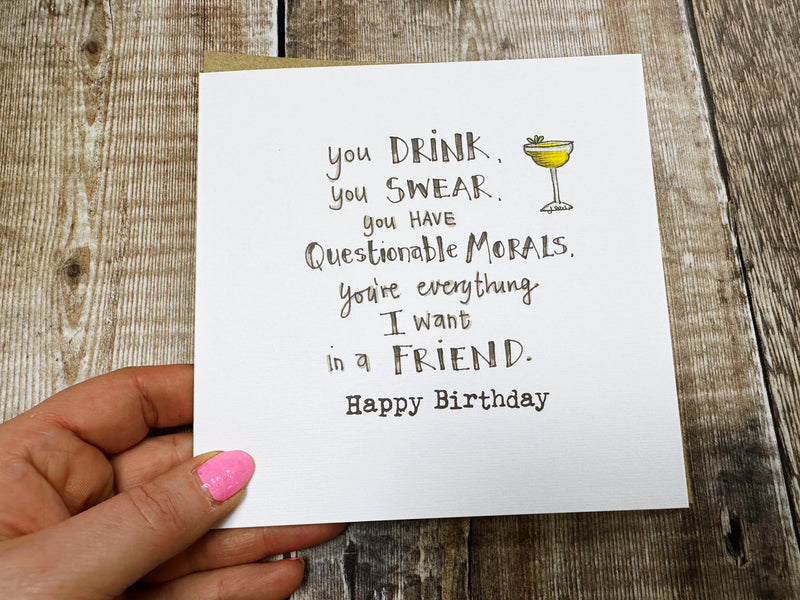 you DRINK,
you SWEAR,
you HAVE
Questionable MORALS,
you're everything
I want
in a FRIEND.
Happy Birthday